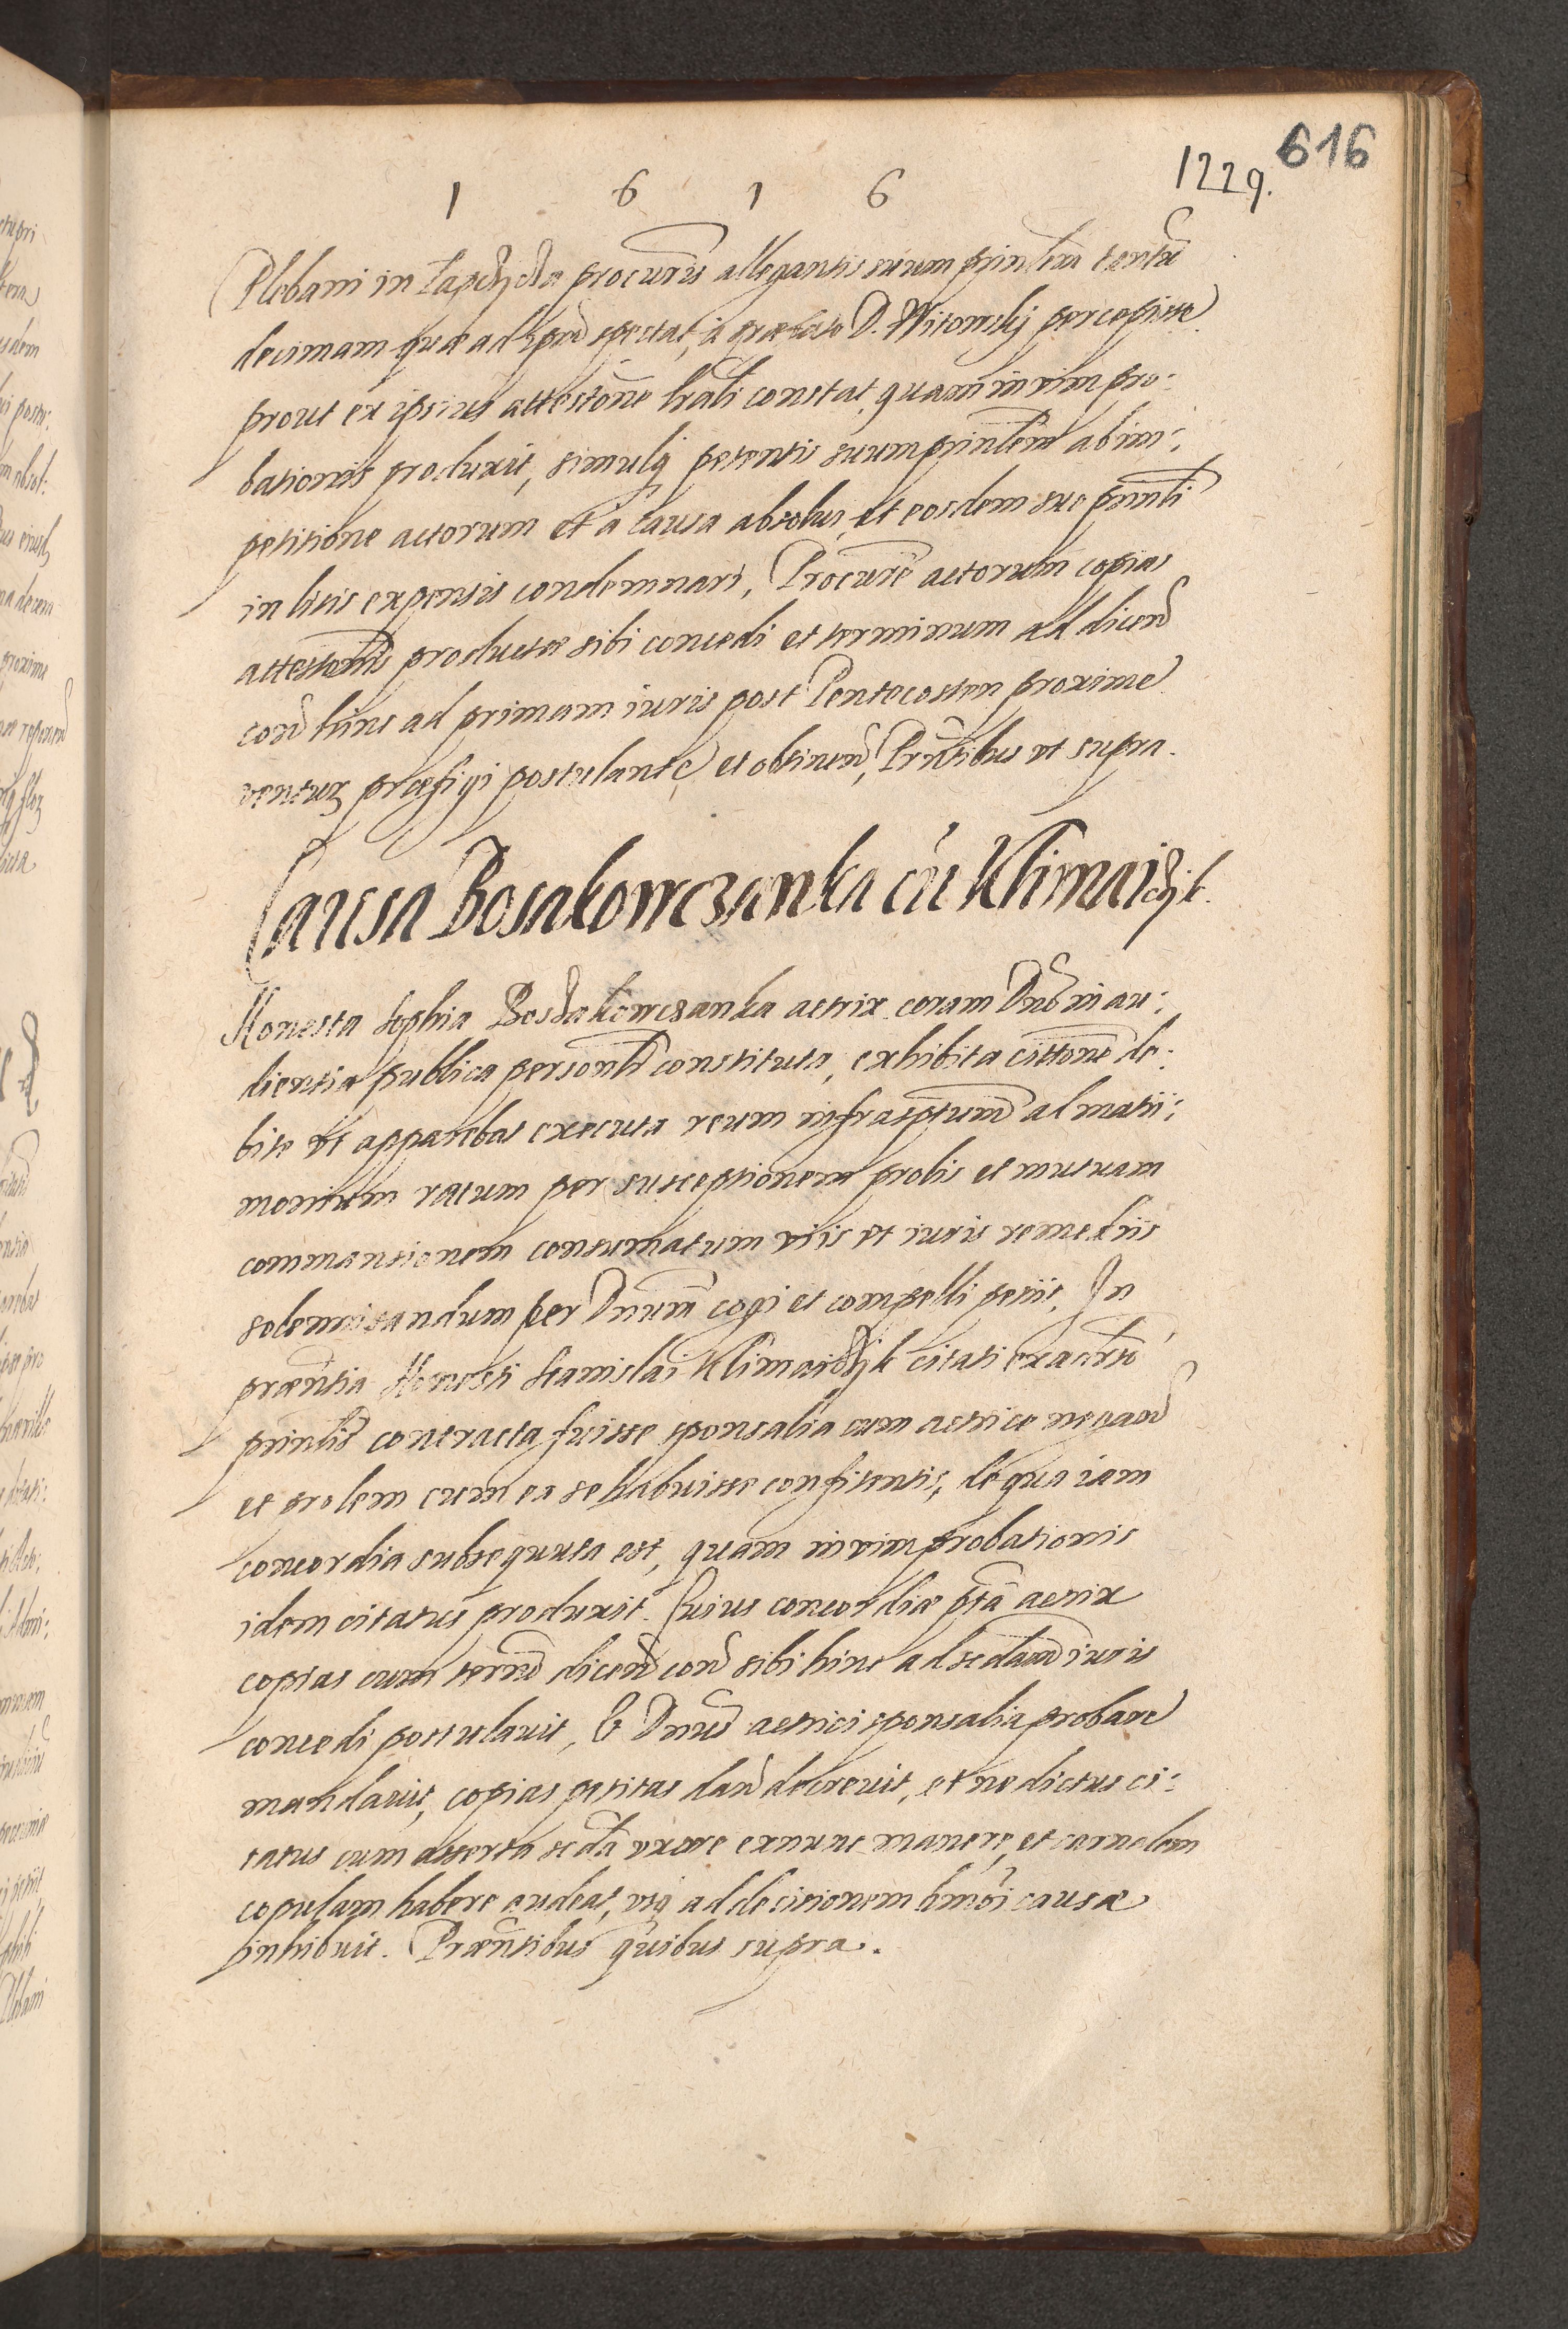 616
1229.
1 6 1 6
Plebani in Lapczycza procuris allegantis suum prinlem tantu
decimam quæ ad ipm spectat, à præfato D. Witowskj percepisse
prout ex ipsius attestone lrali constat, quam in vim pro:
bationis produxit, simulq petentis suum prinlem ab im:
petitione actorum et a causa absolui, et eosdem sue prinli
in litis expensis condemnari, Procure actorum copias
attestonis productæ sibi concedi et terminum ad dicend
con hinc ad primam iuris post Pentecosten proxime
ventuz præfigi postulante et obtinen, Prntibus vt supra.
Causa Bosakowczanka cu Klimaidzjk.
Honesta Sophia Boszakowczanka actrix coram Dno in au:
dientia publica personlr constituta, exhibita cittone de:
bite vt apparebat executa reum infrascptum ad matri:
monium ratum per susceptionem prolis et mutuam
commansionem consumatum viis vt iuris remediis
solemnisandum per Dnum cogi et compelli petiit. In
præntia Honesti Stanislai Klimaidzjk citati ex aduerso
prinlis contracta fuisse sponsalia cum actrice negan
et prolem cum ea se habuisse confitentis, de qua iam
concordia subsequuta est, quam in vim probationis
idem citatus produxit. Cuius concordiæ pta actrix
copias cum termo dicen con sibi hinc ad sedam iuris
concedi postulauit, Et Dnus actrici sponsalia probare
mandauit, copias petitas dan decreuit, et ne dictus ci:
tatus cum asserta seda vxore exnunc manere, et carnalem
copulam habere audeat, vsq ad decisionem hmoi causæ
inhibuit. Præntibus quibus supra.